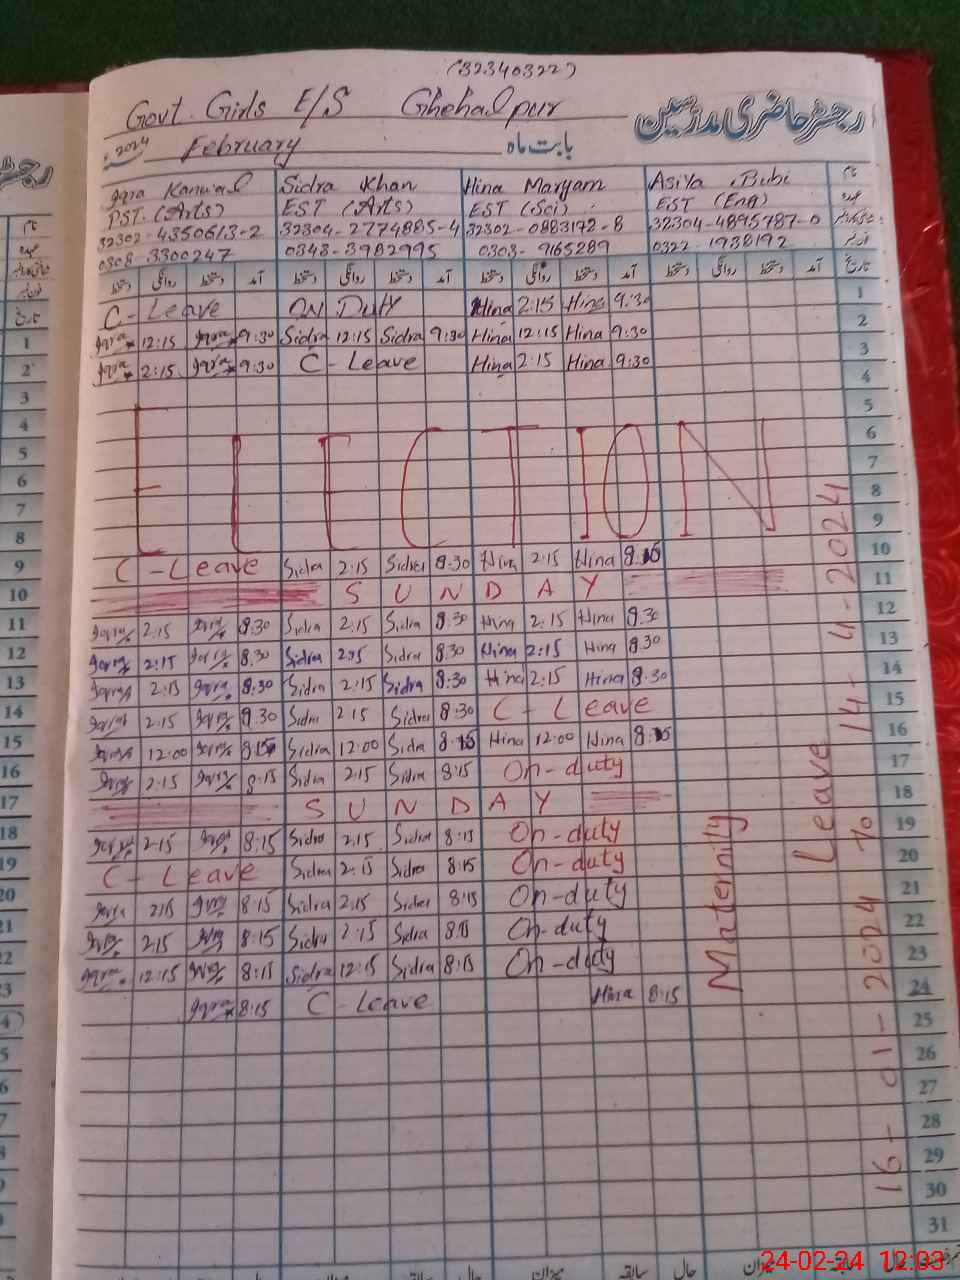 (32340322)
Govt. Girls E/S Ghehalpur رجسٹر حاضری مدرسین
2024 February بابت ماہ
Iqra Kanwal Sidra Khan Hina Maryam Asiya Bibi نام
PST. (Arts) EST (Arts) EST (Sci) EST (Eng) عہدہ
32302-4350613-2 32304-2774885-4 32302-0883172-8 32304-4895787-0
0308-3300247 0343-3982995 0303-9165289 0322-1938192
دستخط روانگی دستخط آمد دستخط روانگی دستخط آمد دستخط روانگی دستخط آمد دستخط روانگی دستخط آمد تاریخ
C-Leave ON Duty Hina 2:15 Hina 9:30 1
Iqra 12:15 Iqra 9:30 Sidra 12:15 Sidra 9:30 Hina 12:15 Hina 9:30 2
Iqra 2:15 Iqra 9:30 C-Leave Hina 2:15 Hina 9:30 3
4
5
ELECTION
6
7
8
9
C-Leave Sidra 2:15 Sidra 8:30 Hina 2:15 Hina 8:15 10
SUNDAY 11
Iqra 2:15 Iqra 8:30 Sidra 2:15 Sidra 8:30 Hina 2:15 Hina 8:30 12
Iqra 2:15 Iqra 8:30 Sidra 2:15 Sidra 8:30 Hina 2:15 Hina 8:30 13
Iqra 2:15 Iqra 8:30 Sidra 2:15 Sidra 8:30 Hina 2:15 Hina 8:30 14
Iqra 2:15 Iqra 8:30 Sidra 2:15 Sidra 8:30 C-Leave 15
Iqra 12:00 Iqra 8:15 Sidra 12:00 Sidra 8:15 Hina 12:00 Hina 8:15 16
Iqra 2:15 Iqra 8:15 Sidra 2:15 Sidra 8:15 On-duty 17
SUNDAY 18
Iqra 2:15 Iqra 8:15 Sidra 2:15 Sidra 8:15 On-duty 19
C-Leave Sidra 2:15 Sidra 8:15 On-duty 20
Iqra 2:15 Iqra 8:15 Sidra 2:15 Sidra 8:15 On-duty 21
Iqra 2:15 Iqra 8:15 Sidra 2:15 Sidra 8:15 On-duty 22
Iqra 12:15 Iqra 8:15 Sidra 12:15 Sidra 8:15 On-duty 23
Iqra 8:15 C-Leave Hina 8:15 24
25
26
27
28
29
30
31
Maternity Leave
16-01-2024 to 14-4-2024
میزان سابقہ حال میزان سابقہ حال
24-02-24 12:03